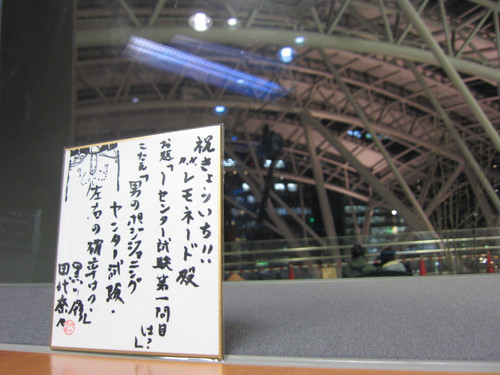 祝きょういち!!
"レモネード殿
お題「センター試験第一問目は?」
こたえ「男のポジショニング
ヤンター試験・
左右の確立は?」
田代奈々